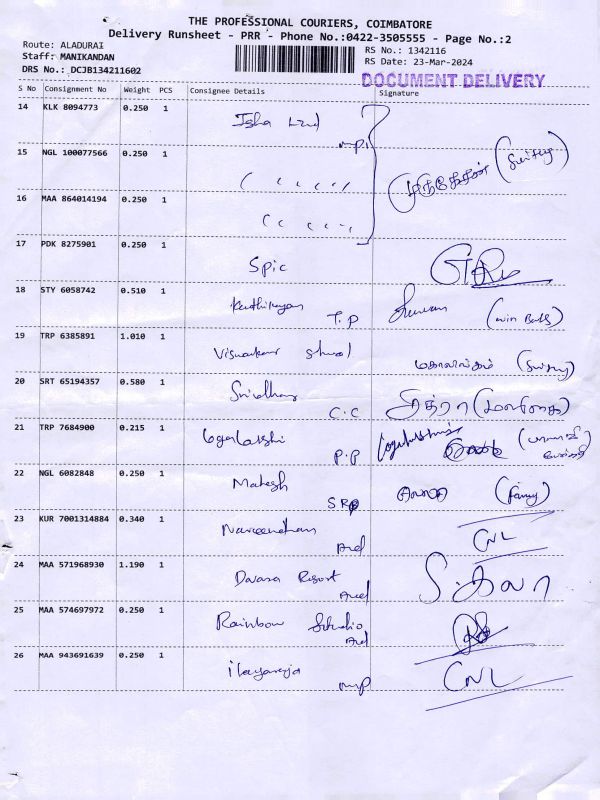 THE PROFESSIONAL COURIERS, COIMBATORE
Delivery Runsheet - PRR - Phone No.:0422-3505555 - Page No.:2
Route: ALADURAI
Staff: MANIKANDAN
DRS No.: DCJB134211602
RS No.: 1342116
RS Date: 23-Mar-2024
DOCUMENT DELIVERY
S No Consignment No Weight PCS Consignee Details Signature
14 KLK 8094773 0.250 1 Isha
15 NGL 100077566 0.250 1
16 MAA 864014194 0.250 1
17 PDK 8275901 0.250 1 Spic
18 STY 6058742 0.510 1 T.P
19 TRP 6385891 1.010 1
20 SRT 65194357 0.580 1 Sridhar C.C சித்ரா
21 TRP 7684900 0.215 1 P.P
22 NGL 6082848 0.250 1 Mahesh
23 KUR 7001314884 0.340 1 CNL
24 MAA 571968930 1.190 1 Resort S. கலா
25 MAA 574697972 0.250 1 Rainbow Studio
26 MAA 943691639 0.250 1 ilayaraja mp CNL